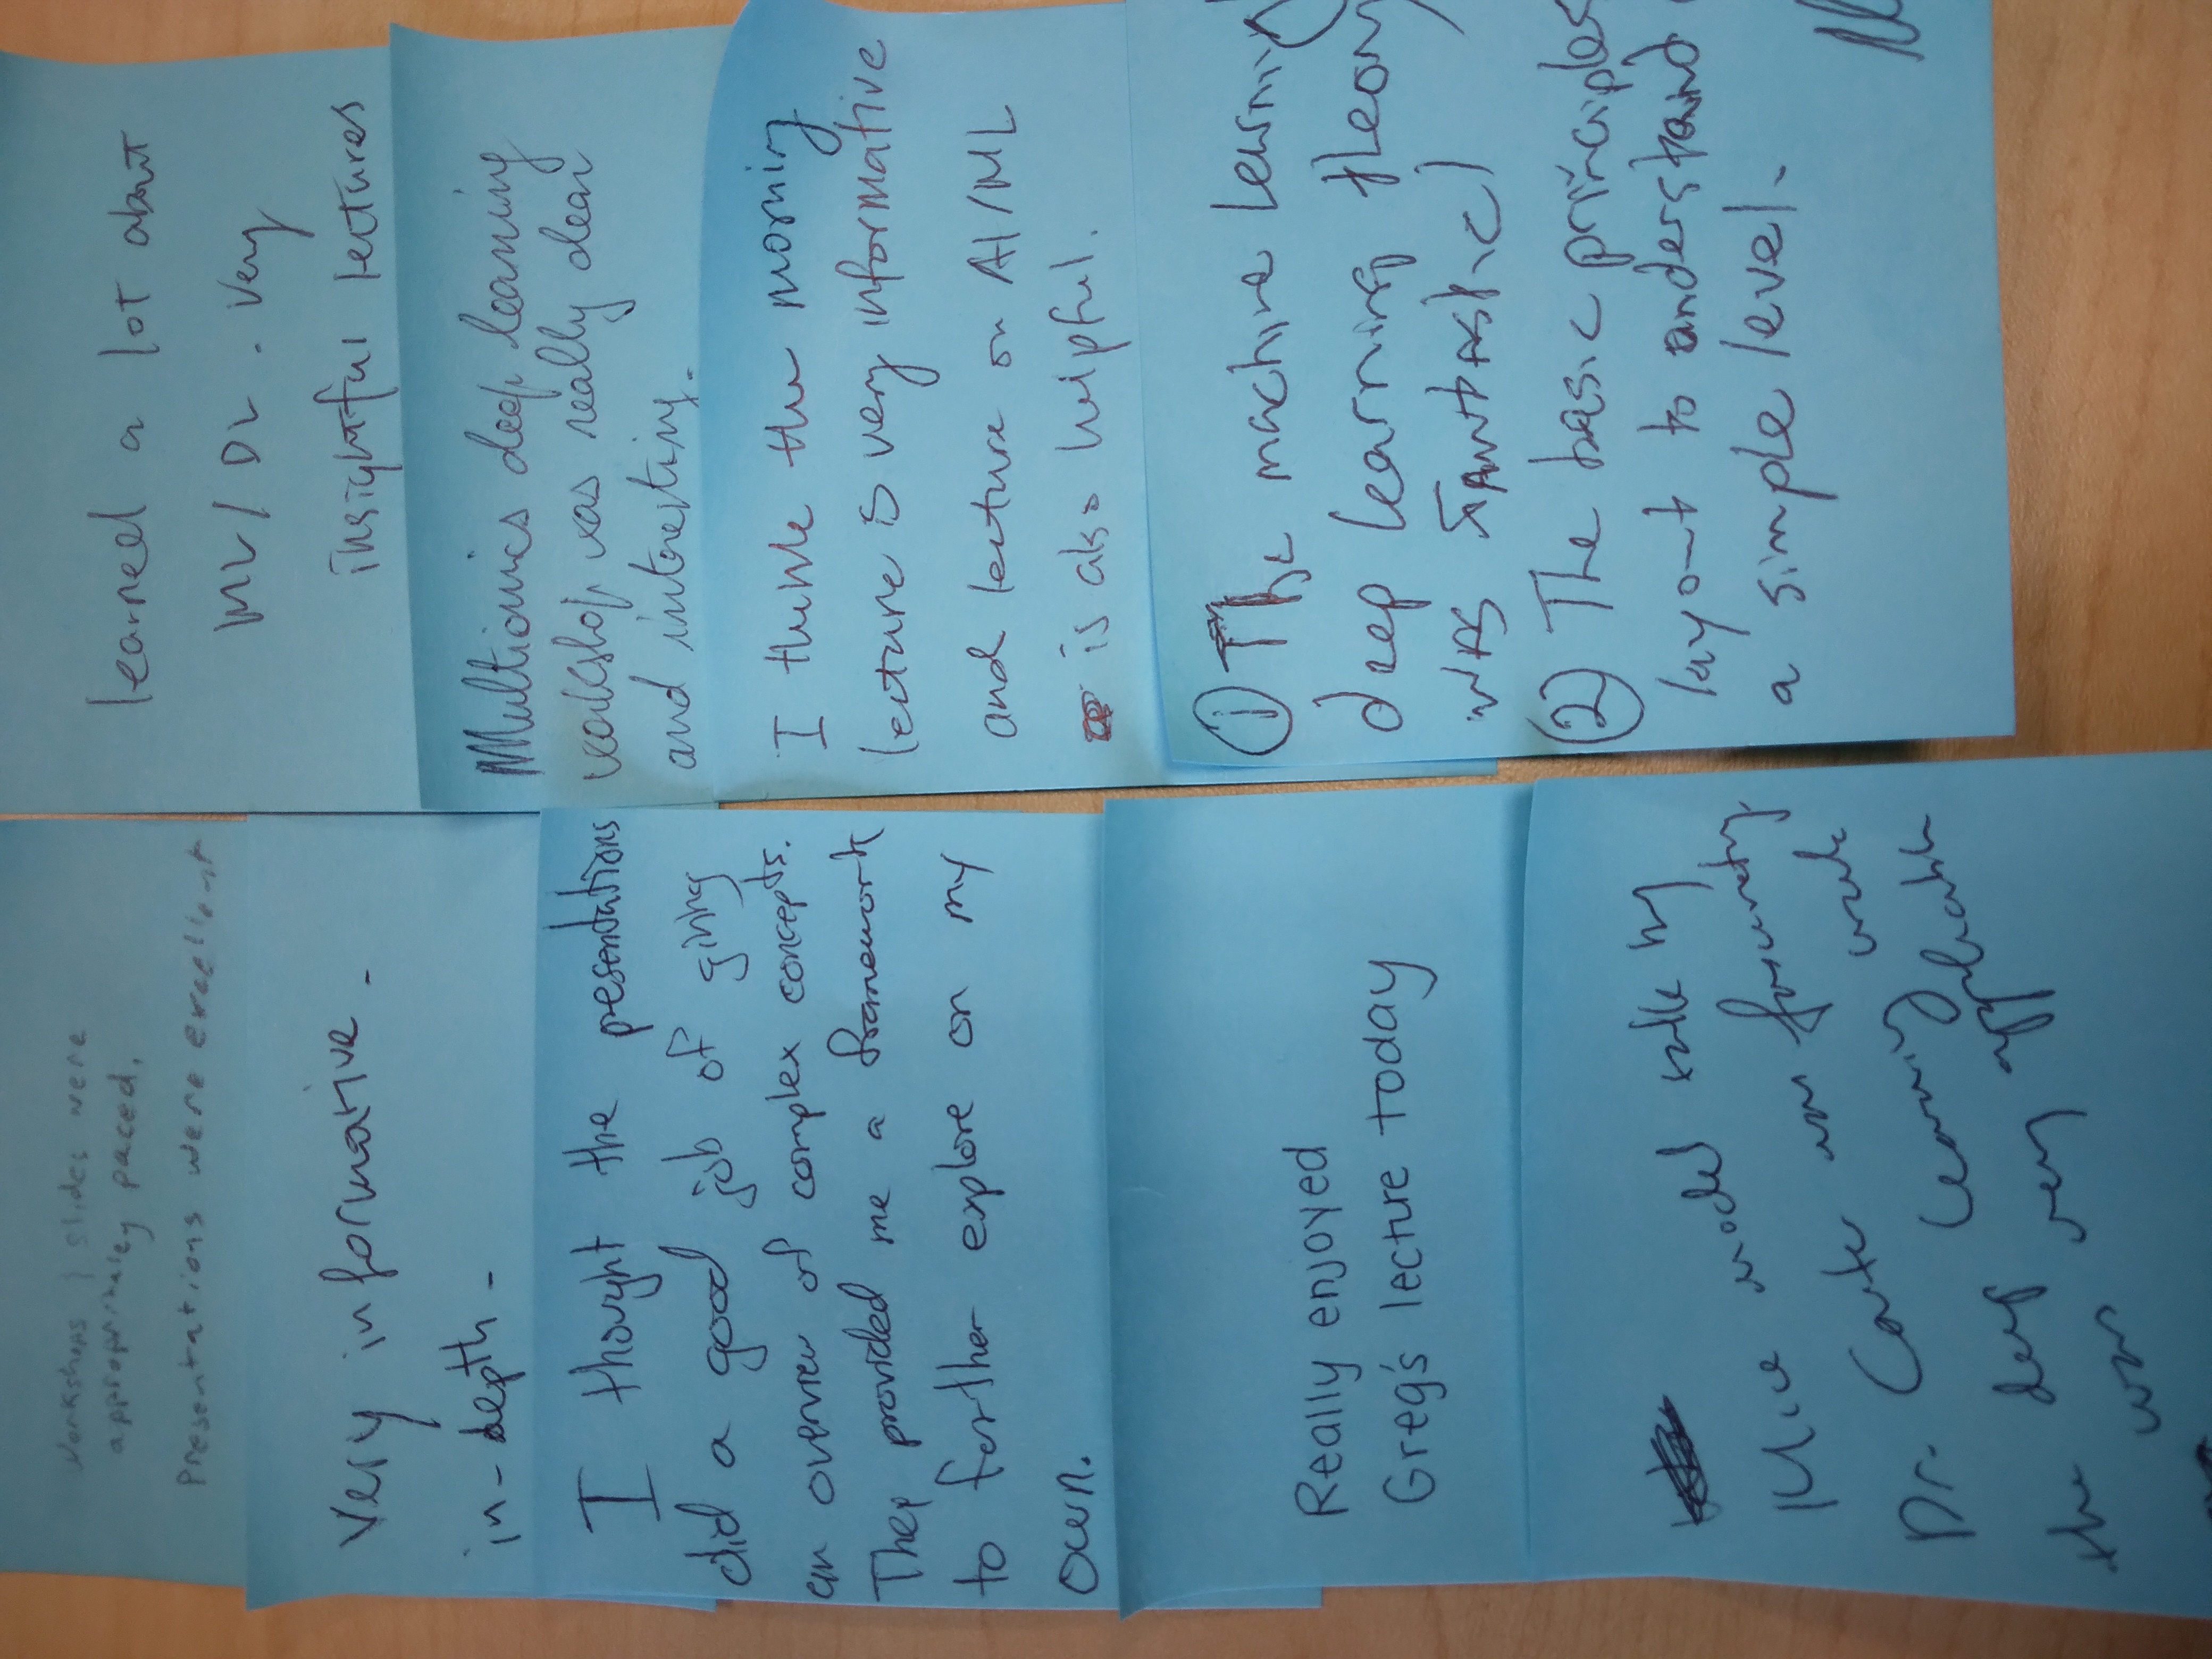 Workshops / slides were
appropriately paced.
Presentations were excellent
Very informative.
in-depth.
I thought the presentations
did a good job of giving
an overview of complex concepts.
They provided me a framework
to further explore on my
own.
Really enjoyed
Greg's lecture today
Mice model talk by
Dr. Carter was fascinating
the deep learning work
was very applicable
learned a lot about
ML/DL. Very
insightful lectures
Multiomics deep learning
workshop was really clear
and interesting.
I think the morning
lecture is very informative
and lecture on AI/ML
is also helpful.
① The machine learning
deep learning theory
was FANTASTIC!
② The basic principles
layout to understand
a simple level.